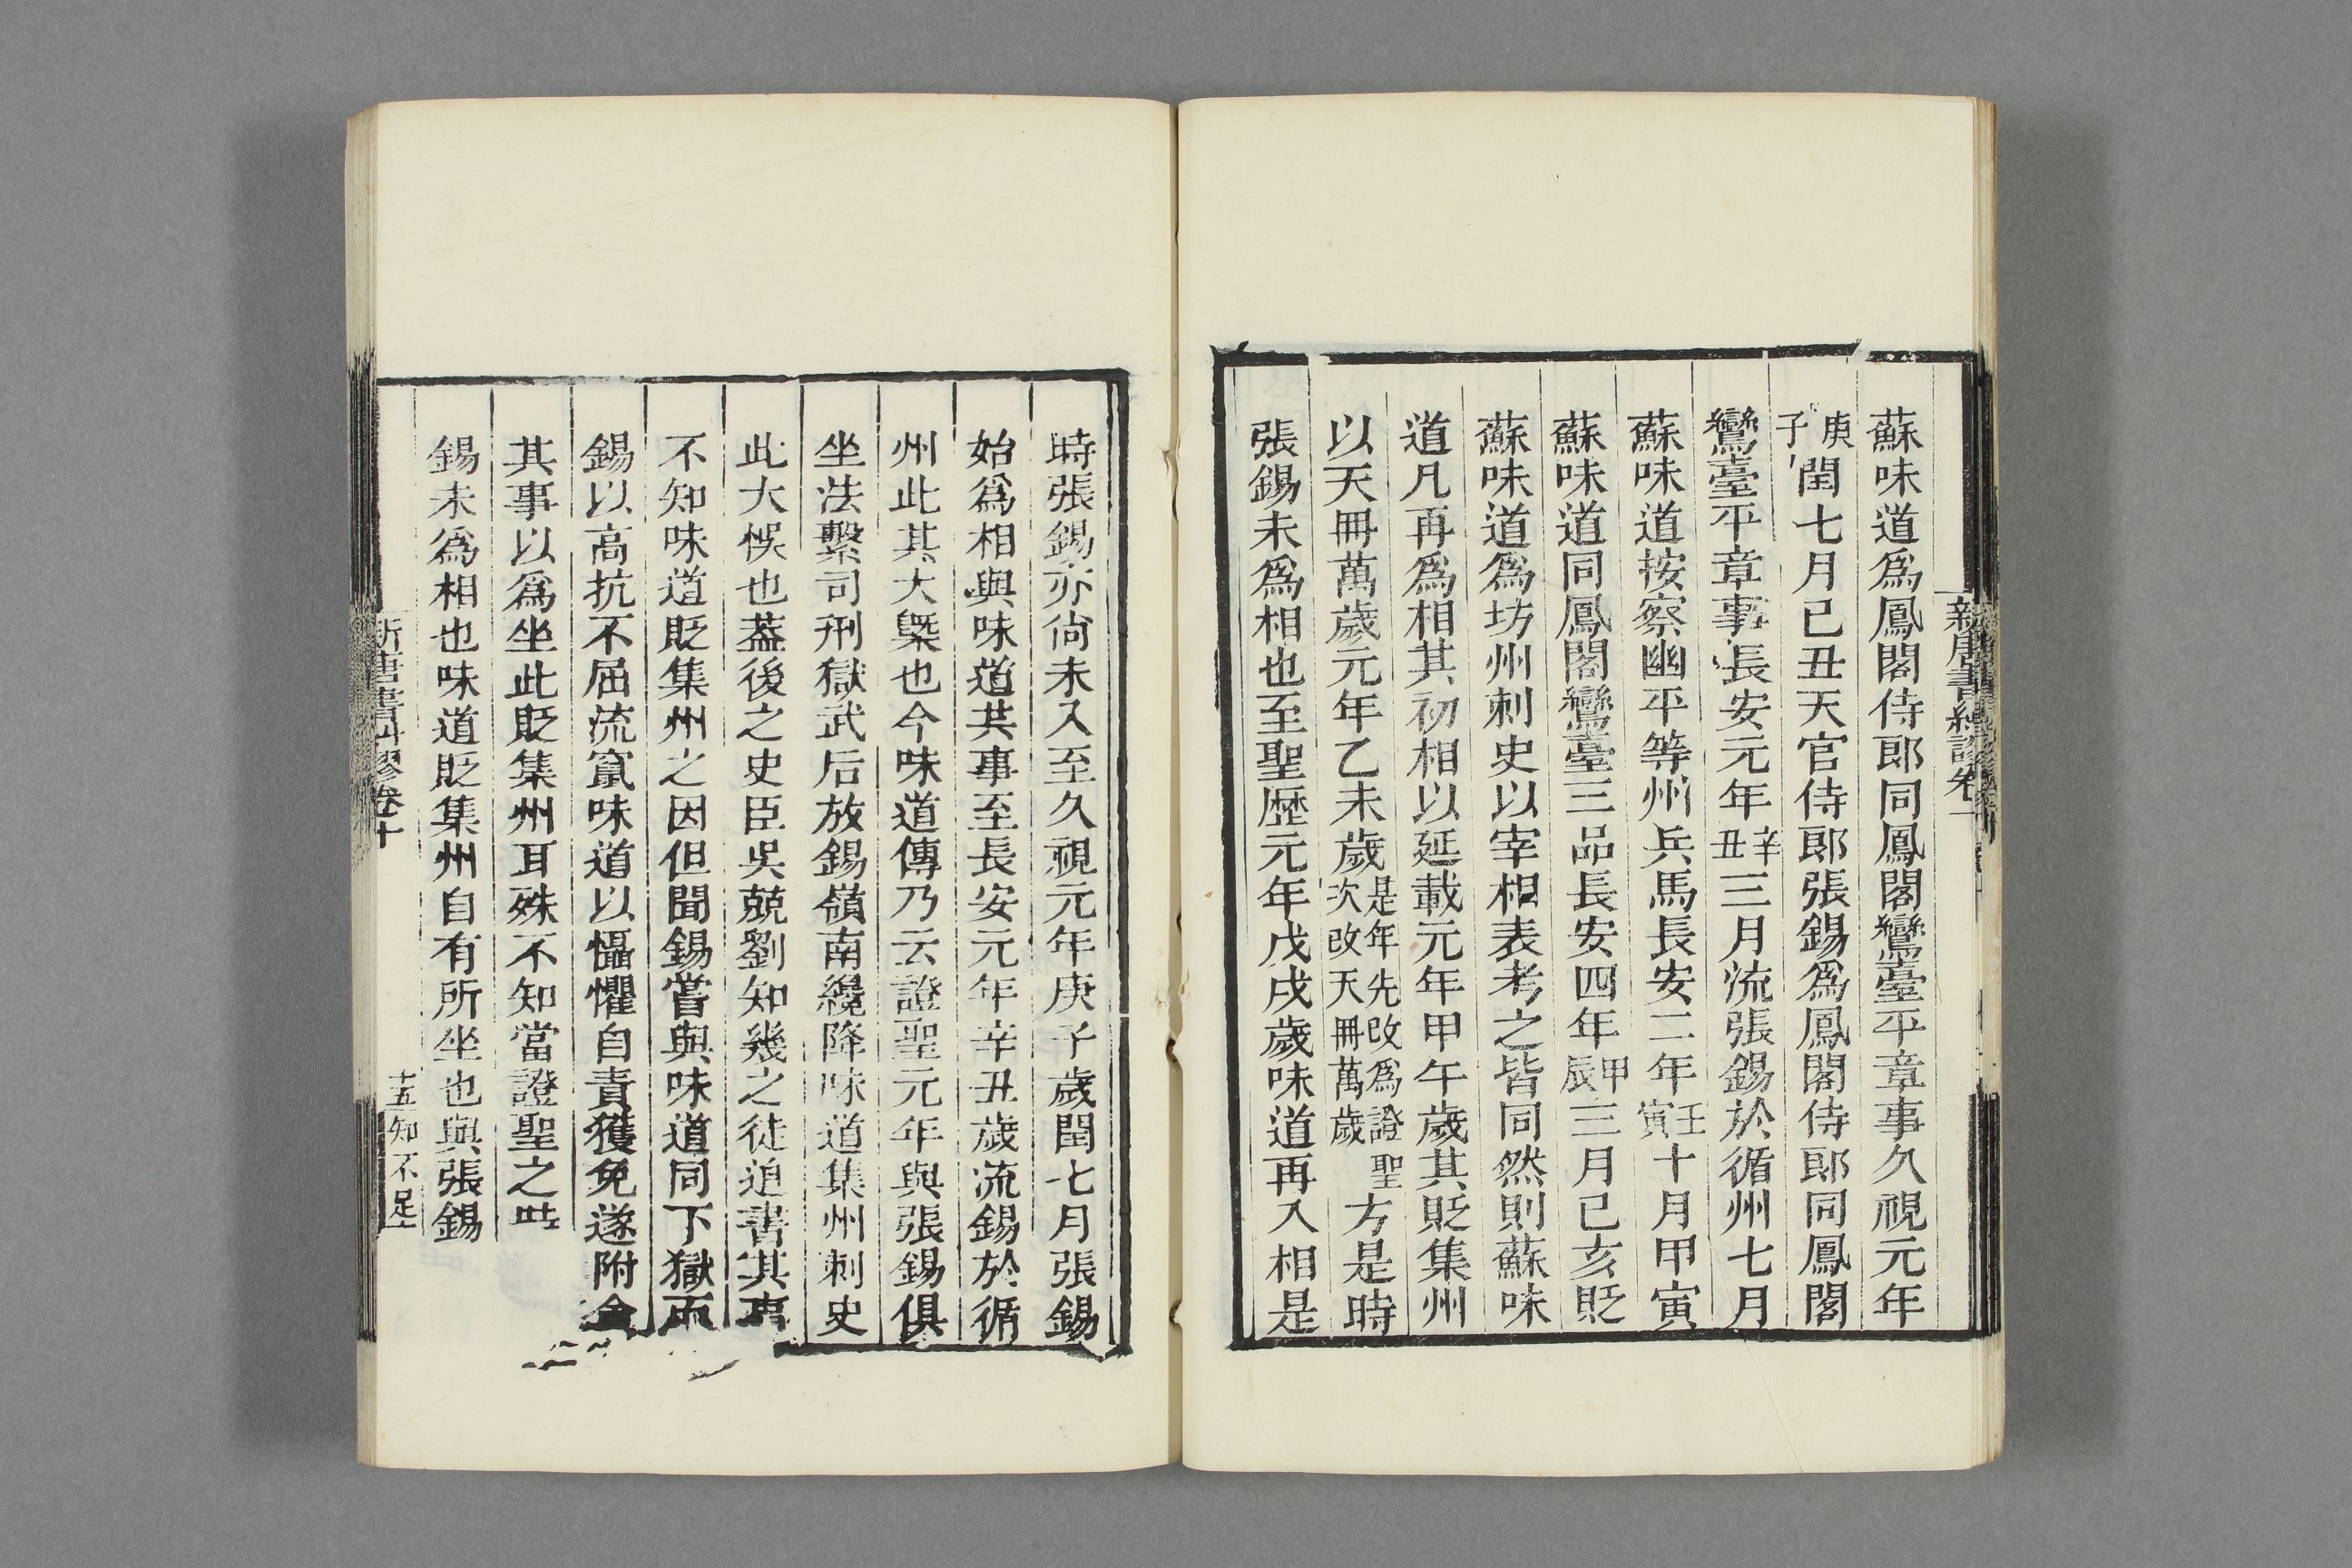 蘇味道爲鳳閣侍郎同鳳閣鸞臺平章事久視元年
庚子閏七月已丑天官侍郎張錫爲鳳閣侍郎同鳳閣
鸞臺平章事長安元年辛丑三月流張錫於循州七月
蘇味道按察幽平等州兵馬長安二年壬寅十月甲寅
蘇味道同鳳閣鸞臺三品長安四年甲辰三月已亥貶
蘇味道爲坊州刺史以宰相表考之皆同然則蘇味
道凡再爲相其初相以延載元年甲午歲其貶集州
以天冊萬歲元年乙未歲是年先改爲證聖次改天冊萬歲方是時
張錫未爲相也至聖歷元年戊戌歲味道再入相是
時張錫亦尙未入至久視元年庚子歲閏七月張錫
始爲相與味道共事至長安元年辛丑歲流錫於循
州此其大槩也今味道傳乃云證聖元年與張錫俱
坐法繫司刑獄武后放錫嶺南纔降味道集州刺史
此大悞也葢後之史臣吳兢劉知幾之徒追書其事
不知味道貶集州之因但聞錫嘗與味道同下獄而
錫以高抗不屈流竄味道以懾懼自責獲免遂附會
其事以爲坐此貶集州耳殊不知當證聖之時
錫未爲相也味道貶集州自有所坐也與張錫
新唐書糾謬卷十
十五知不足